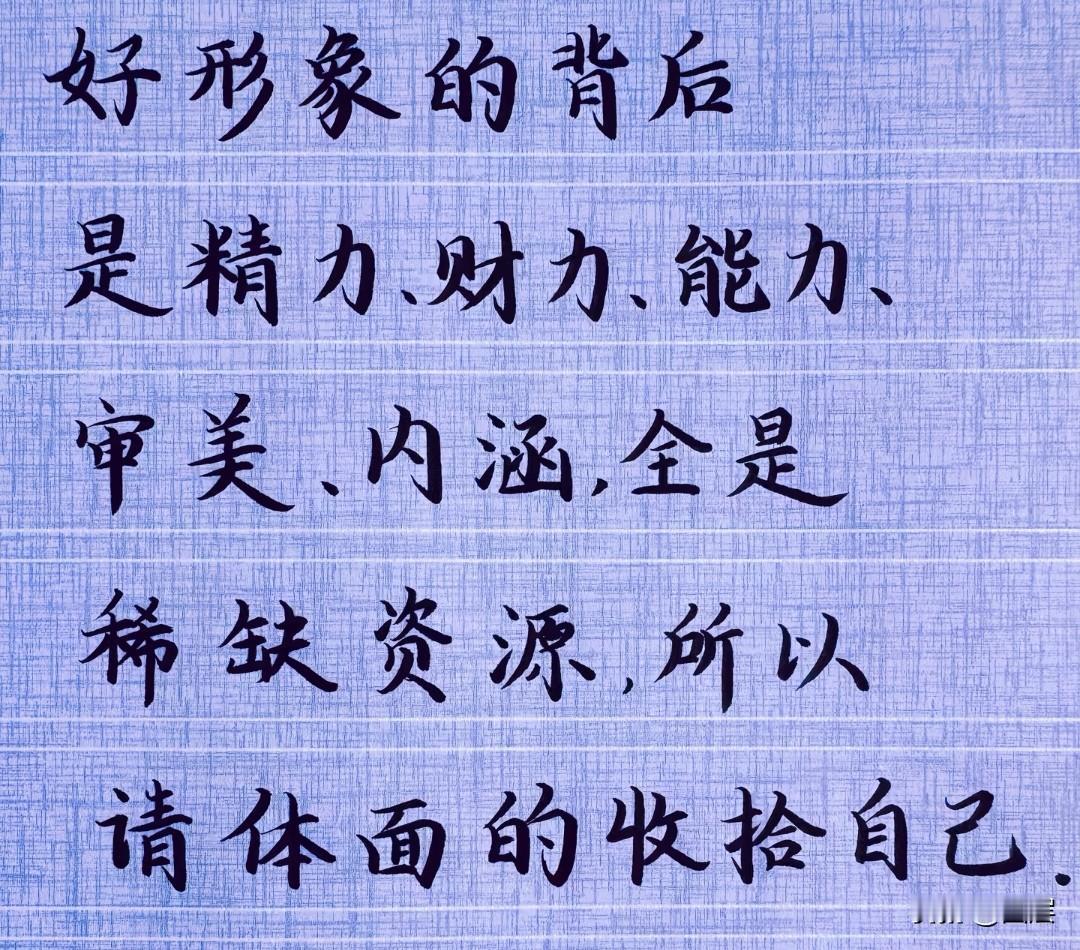 好形象的背后
是精力、财力、能力、
审美、内涵,全是
稀缺资源,所以
请体面的收拾自己.